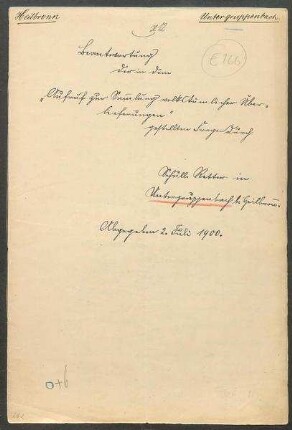 Heilbronn
Untergruppenbach
Beantwortung
der in dem
„Aufruf zur Sammlung volkstümlicher Über-
lieferungen“
gestellten Fragen durch
Schull. Retter in
Untergruppenbach b. Heilbronn.
Abgegeben 2. Juli 1900.